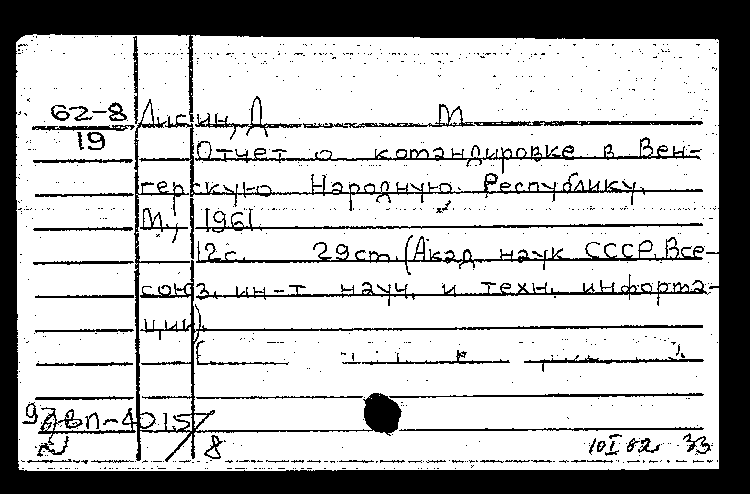 62-8 Лисин, Д М
19
Отчет о командировке в Вен-
герскую Народную Республику.
М., 1961.
12с. 29см. (Акад. наук СССР. Все-
союз. ин-т науч. и техн. информа-
ции).
8
10 I 62 33